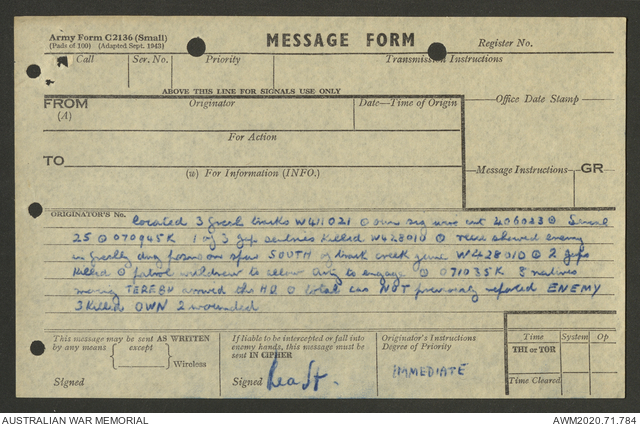 Army Form C2136 (Small)
(Pads of 100) (Adapted Sept. 1943)
MESSAGE FORM
Register No.
Call
Ser. No.
Priority
Transmission Instructions
ABOVE THIS LINE FOR SIGNALS USE ONLY
FROM
(A)
Originator
Date—Time of Origin
Office Date Stamp
For Action
TO
(W) For Information (INFO.)
Message Instructions
GR
ORIGINATOR'S No.
located 3 fresh tracks W411021 ⊙ own sig wire cut 406023 ⊙ Serial
25 ⊙ 070945K 1 of 3 Jap sentries killed W428010 ⊙ recce showed enemy
in freshly dug posns on spur SOUTH of track creek junc W428010 ⊙ 2 Japs
killed ⊙ patrol withdrew to allow arty to engage ⊙ 071035K 8 natives
TEREBU arrived this HQ ⊙ total cas NOT previously reported ENEMY
3 killed OWN 2 wounded
This message may be sent AS WRITTEN
by any means except
Wireless
Signed
If liable to be intercepted or fall into
enemy hands, this message must be
sent IN CIPHER
Signed
Originator's Instructions
Degree of Priority
IMMEDIATE
Time
System
Op
THI or TOR
Time Cleared
AUSTRALIAN WAR MEMORIAL
AWM2020.71.784